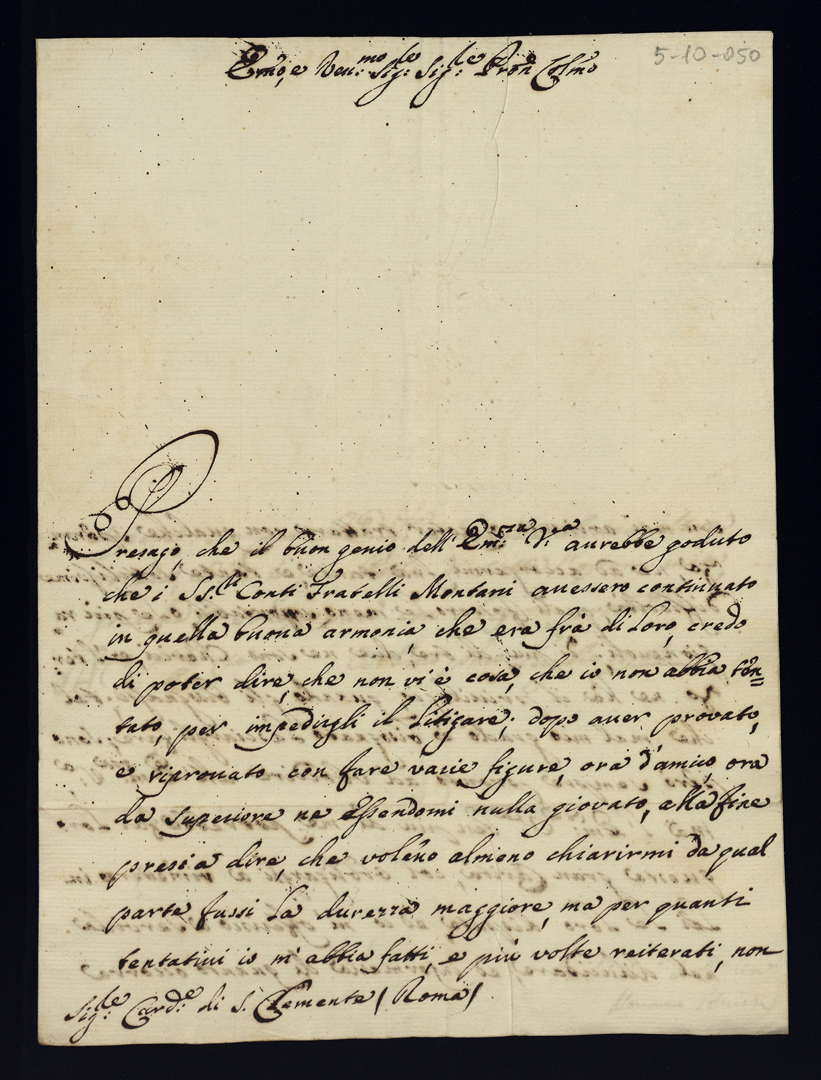 5-10-050
Emo, e Reu:mo Sig:le Sig:le Pron Colmo
Presago, che il buon genio dell' Em:za V:a aurebbe goduto
che i Ss.ri Conti Fratelli Montani auessero continuato
in quella buona armonia, che era frà di Loro, credo
di poter dire, che non vi è cosa, che io non abbia ten=
tato, per impedirgli il Litigare; dopo auer prouato,
e riprouato con fare varie figure, ora d'amico, ora
da Superiore ne Essendomi nulla giouato, alla fine
presi a dire, che voleuo almeno chiarirmi da qual
parte fussi La durezza maggiore, ma per quanti
tentatiui io m'abbia fatti, e più volte reiterati, non
Sig:le Card:e di S. Clemente / Roma /